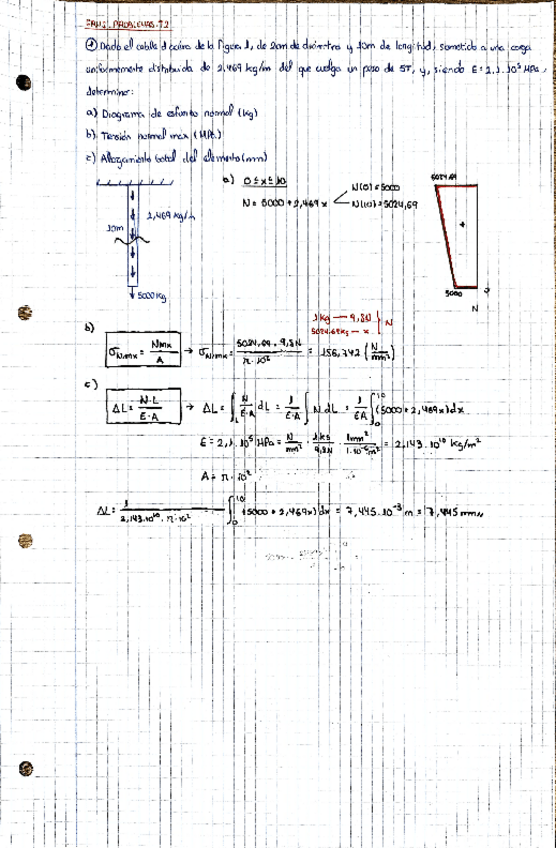 PROBLEMAS T2
① Dado el cable d acero de la figura 1, de 2cm de diámetro y 10m de longitud, sometido a una carga
uniformemente distribuida de 2,469 kg/m del que cuelga un peso de 5T, y, siendo E=2,1·10⁵ MPa,
determinar:
a) Diagrama de esfuerzo normal (kg)
b) Tensión normal max (MPa)
c) Alargamiento total del elemento (mm)
a) 0≤x≤10
N= 5000+2,469x
N(0)=5000
N(10)=5024,69
2,469 kg/m
10m
5000 kg
5024,69
+
5000
N
b)
σNmax = Nmax/A → σNmax = 5024,69·9,8N/π·10² = 156,742 (N/mm²)
1kg — 9,8N
5024,69kg — x
N
c)
ΔL = N·L/E·A → ΔL = ∫L N/E·A dL = 1/E·A ∫ N dL = 1/EA ∫₀¹⁰ (5000+2,469x)dx
E=2,1·10⁵ MPa = N/mm² · 1kg/9,8N · 1mm²/1·10⁻⁶m² = 2,143·10¹⁰ kg/m²
A= π·10²
ΔL= 1/2,143·10¹⁰·π·10² ∫₀¹⁰ (5000+2,469x)dx = 7,445·10⁻³ m = 7,445 mm